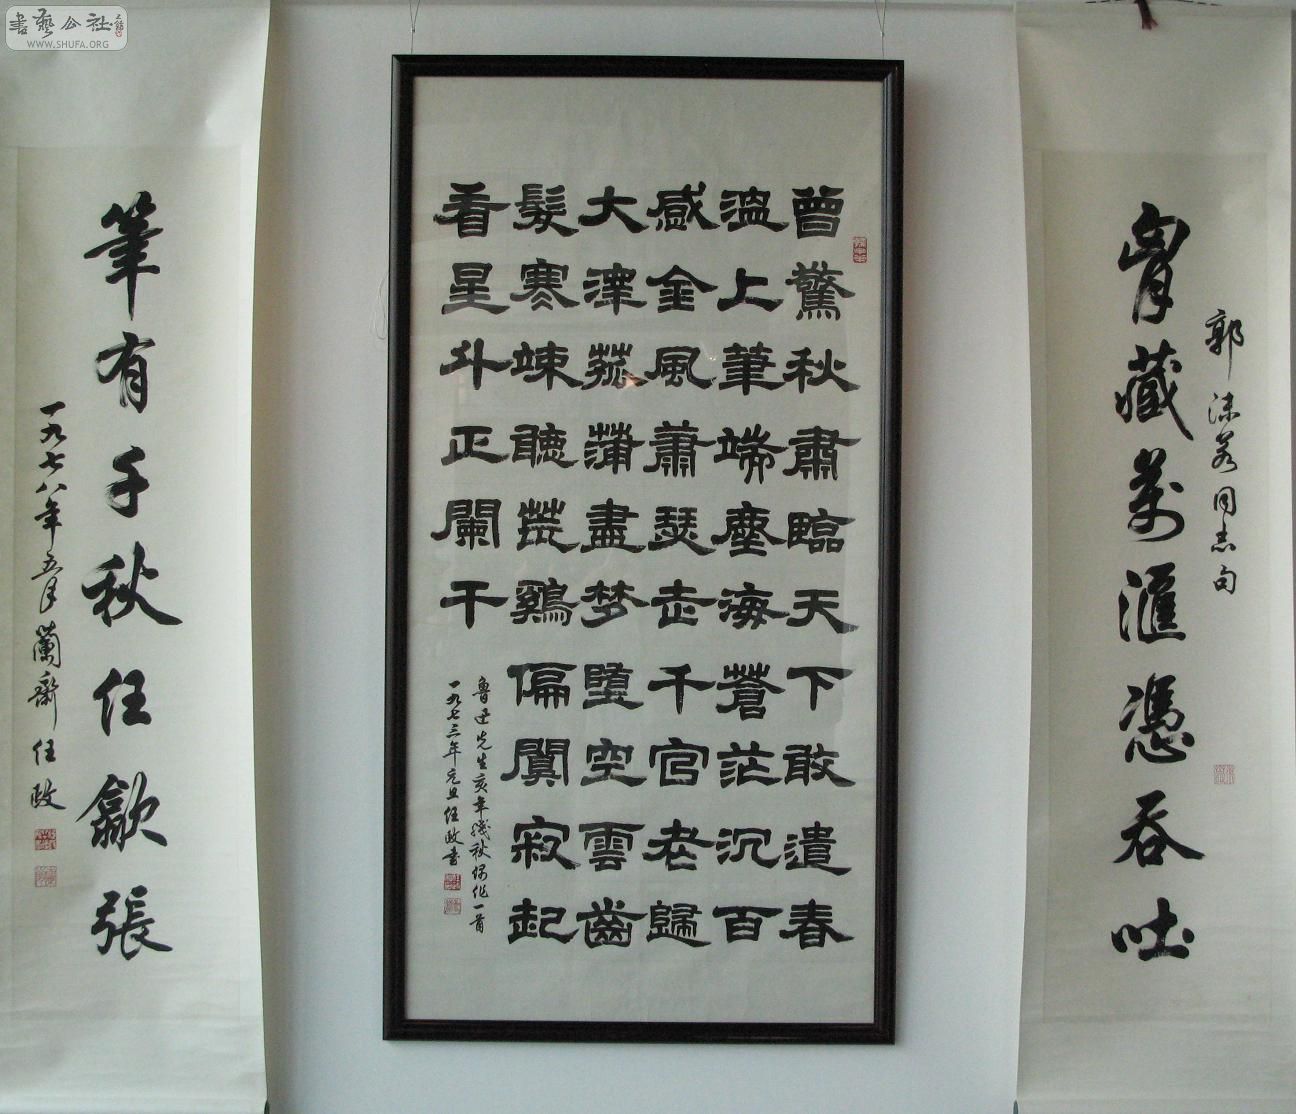 書藝公社
WWW.SHUFA.ORG
郭沫若同志句
胷藏萬滙憑吞吐
曾驚秋肅臨天下敢遣春
温上筆端塵海蒼茫沉百
感金風蕭瑟走千官老歸
大澤菰蒲盡梦墮空雲齒
髮寒竦聽荒鷄偏闃寂起
看星斗正闌干
魯迅先生亥年殘秋偶作一首
一九七三年元旦任政書
筆有千秋任歙張
一九七八年五月蘭齋任政